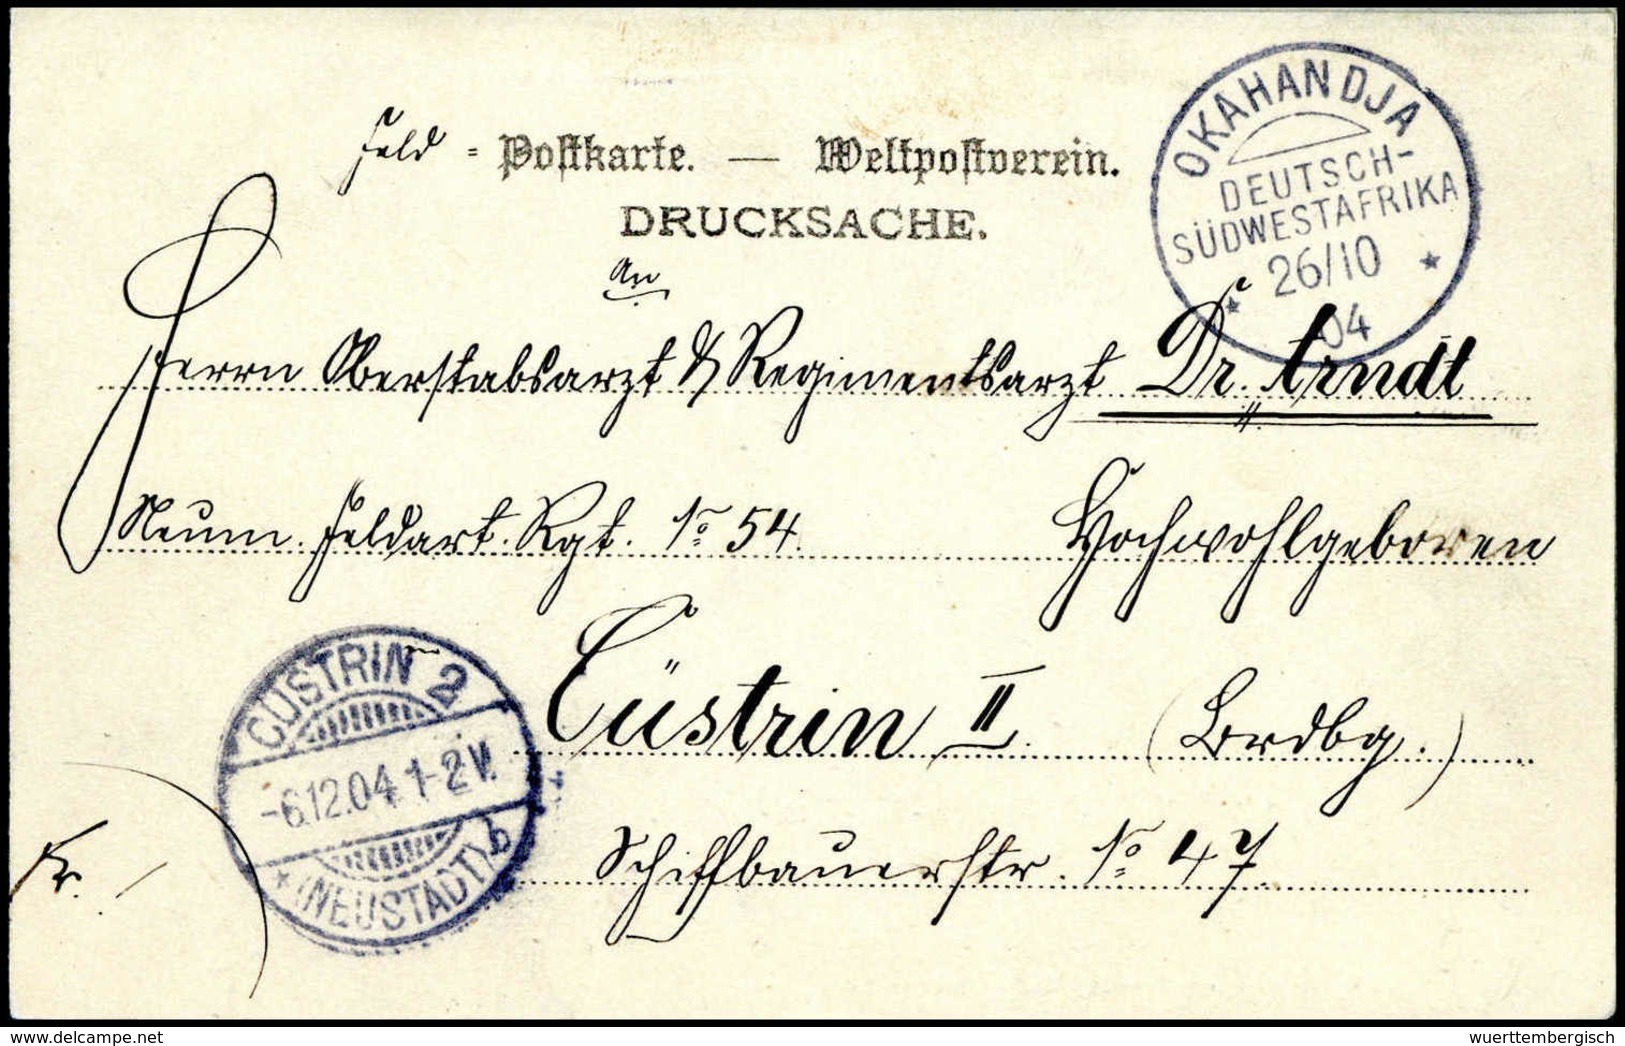 Feld - Postkarte. — Weltpostverein.
DRUCKSACHE.
An
OKAHANDJA
DEUTSCH-
SÜDWESTAFRIKA
26/10
04
Herrn Oberstabsarzt & Regimentsarzt Dr. Arndt
Neum. Feldart. Rgt. No 54.
Hochwohlgeboren
Cüstrin II. (Brdbg.)
Schiffbauerstr. No 47.
CÜSTRIN 2
-6.12.04 1-2 V.
* (NEUSTADT) b
delcampe.net
wuerttembergisch